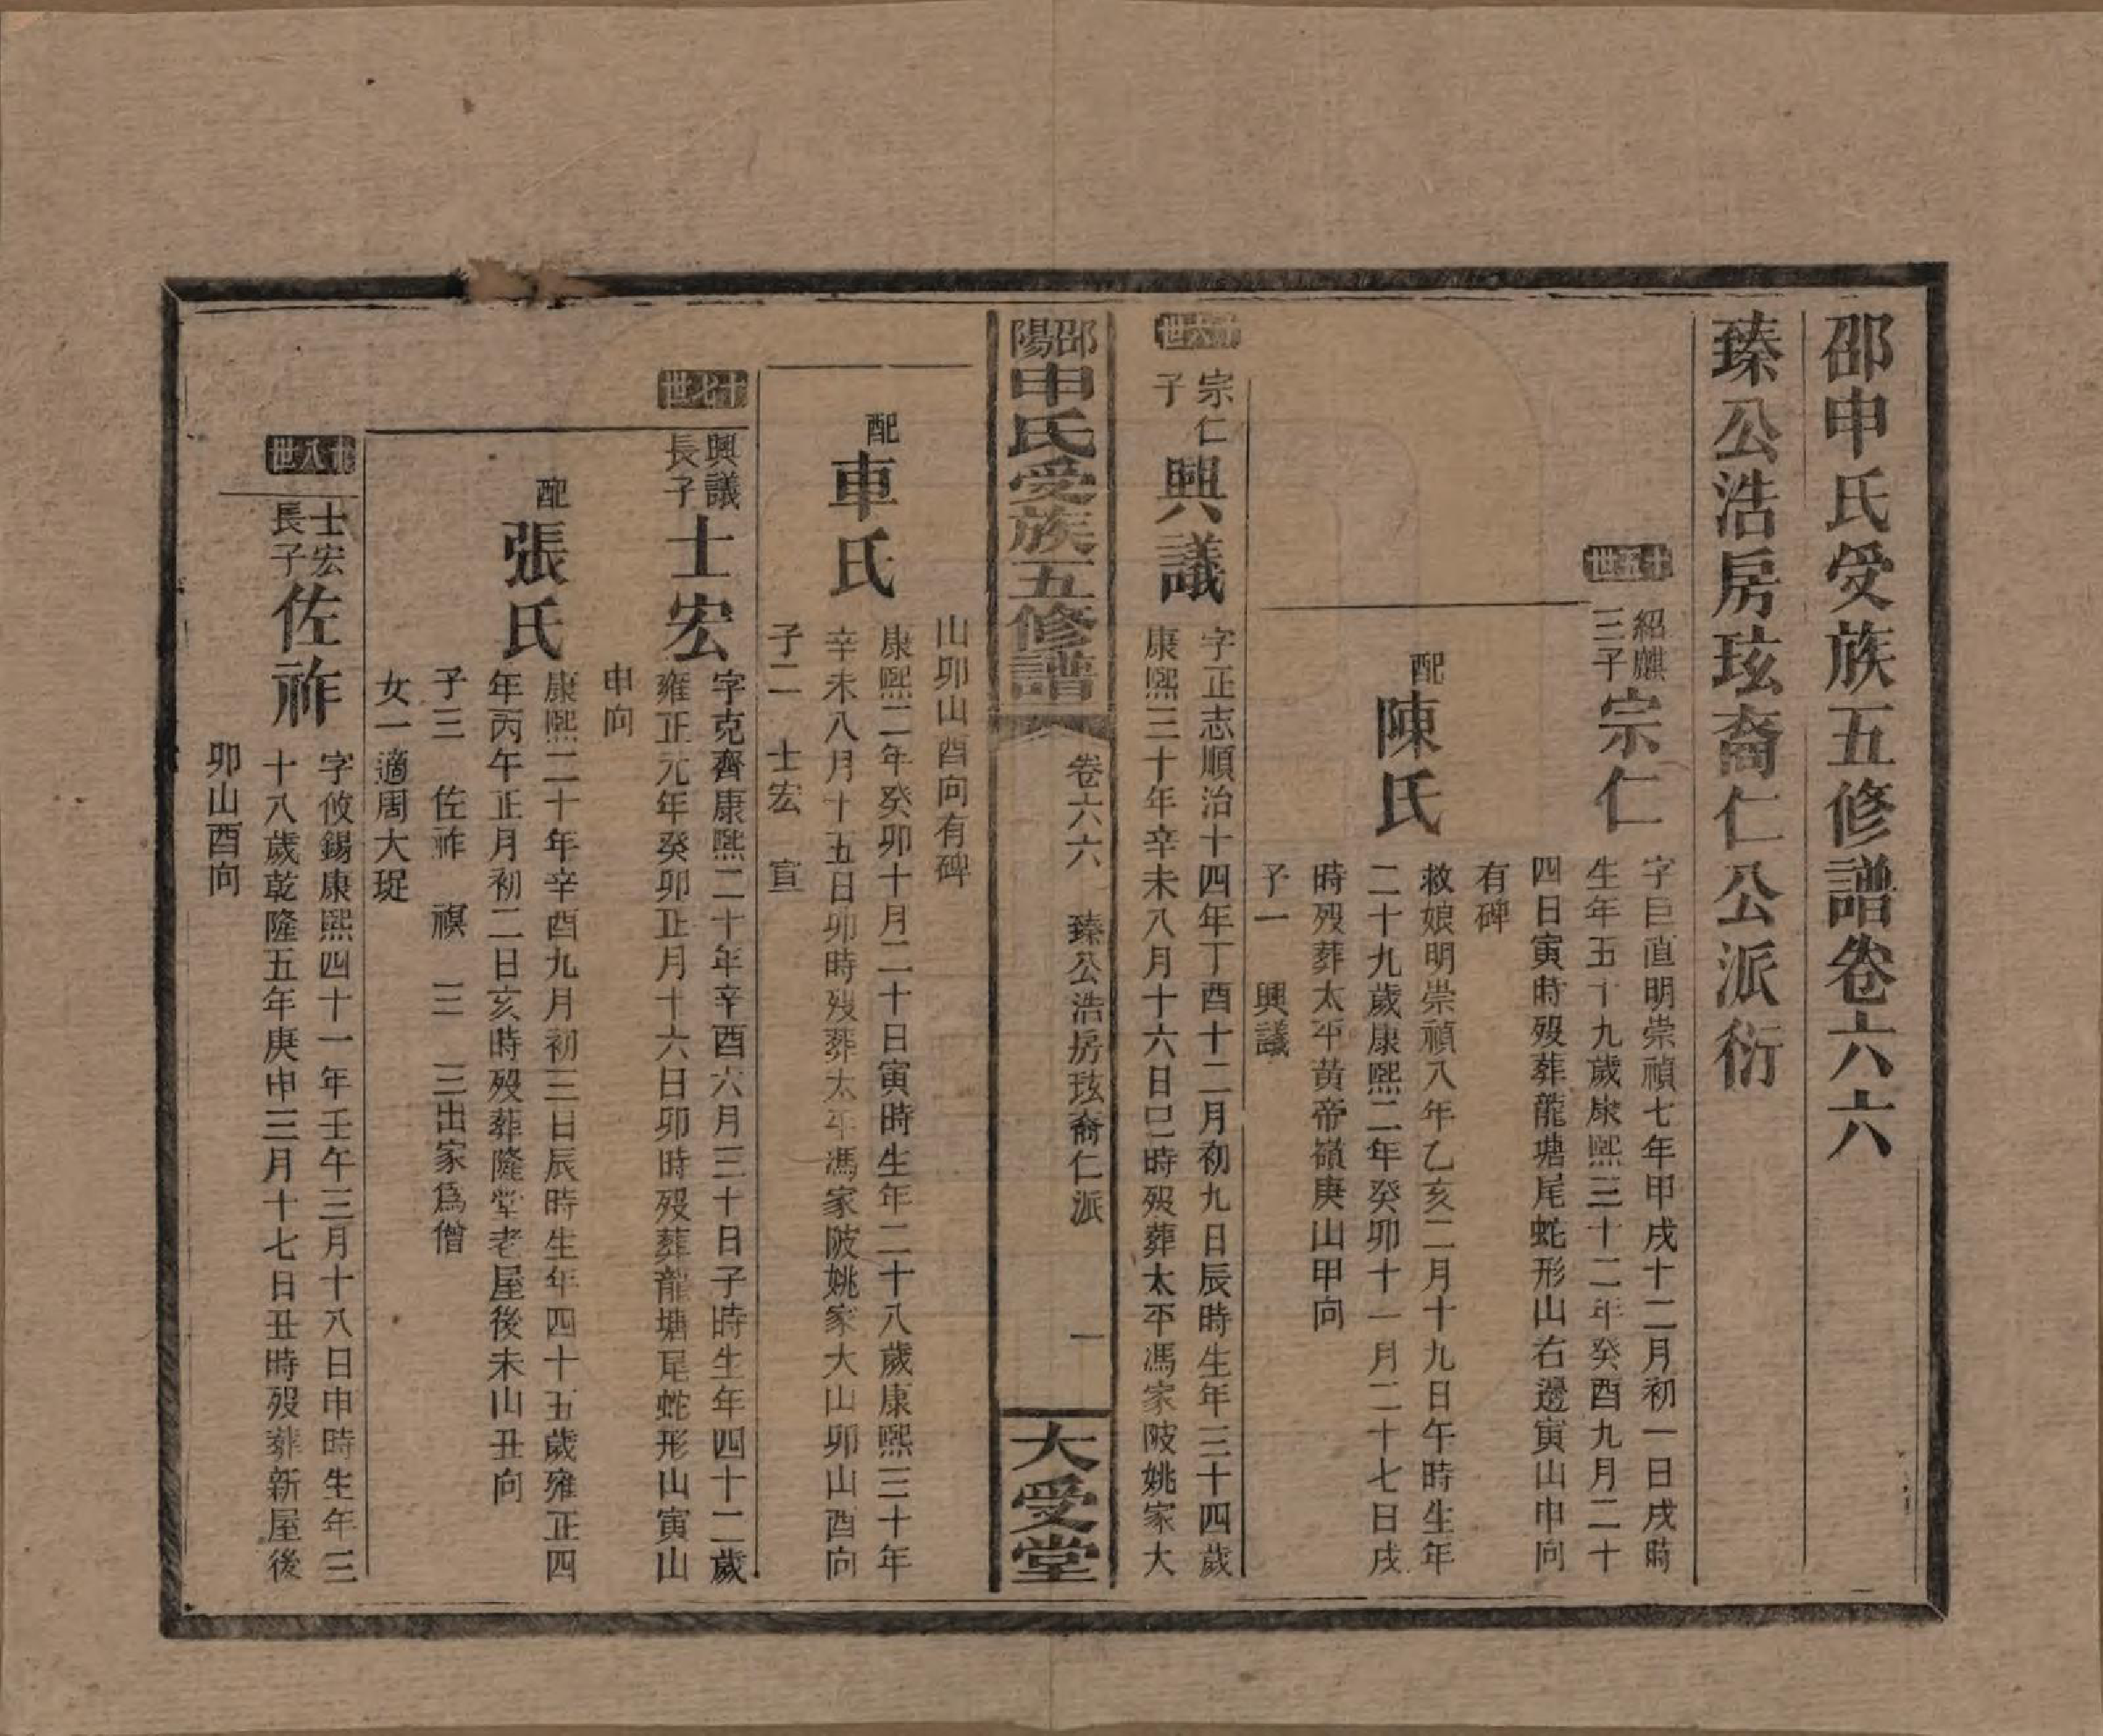 邵申氏受族五修譜卷六六
臻公浩房玹裔仁公派衍
十五世
紹麒
三子
宗仁
字巨直明崇禎七年甲戌十二月初一日戌時
生年五十九歲康熙三十二年癸酉九月二十
四日寅時歿葬龍塘尾蛇形山右邊寅山申向
有碑
配
陳氏
救娘明崇禎八年乙亥二月十九日午時生年
二十九歲康熙二年癸卯十一月二十七日戌
時歿葬太平黃帝嶺庚山甲向
子一　興議
十六世
宗仁
子
興議
字正志順治十四年丁酉十二月初九日辰時生年三十四歲
康熙三十年辛未八月十六日巳時歿葬太平馮家陂姚家大
邵陽申氏受族五修譜
卷六六　臻公浩房玹裔仁派
一
大受堂
山卯山酉向有碑
配
車氏
康熙二年癸卯十月二十日寅時生年二十八歲康熙三十年
辛未八月十五日卯時歿葬太平馮家陂姚家大山卯山酉向
子二　士宏　宣
十七世
興議
長子
士宏
字克齊康熙二十年辛酉六月三十日子時生年四十二歲
雍正元年癸卯正月十六日卯時歿葬龍塘尾蛇形山寅山
申向
配
張氏
康熙二十年辛酉九月初三日辰時生年四十五歲雍正四
年丙午正月初二日亥時歿葬隆堂老屋後未山丑向
子三　佐祚　禩　三　三出家為僧
女一適周大珿
十八世
士宏
長子
佐祚
字攸錫康熙四十一年壬午三月十八日申時生年三
十八歲乾隆五年庚申三月十七日丑時歿葬新屋後
卯山酉向